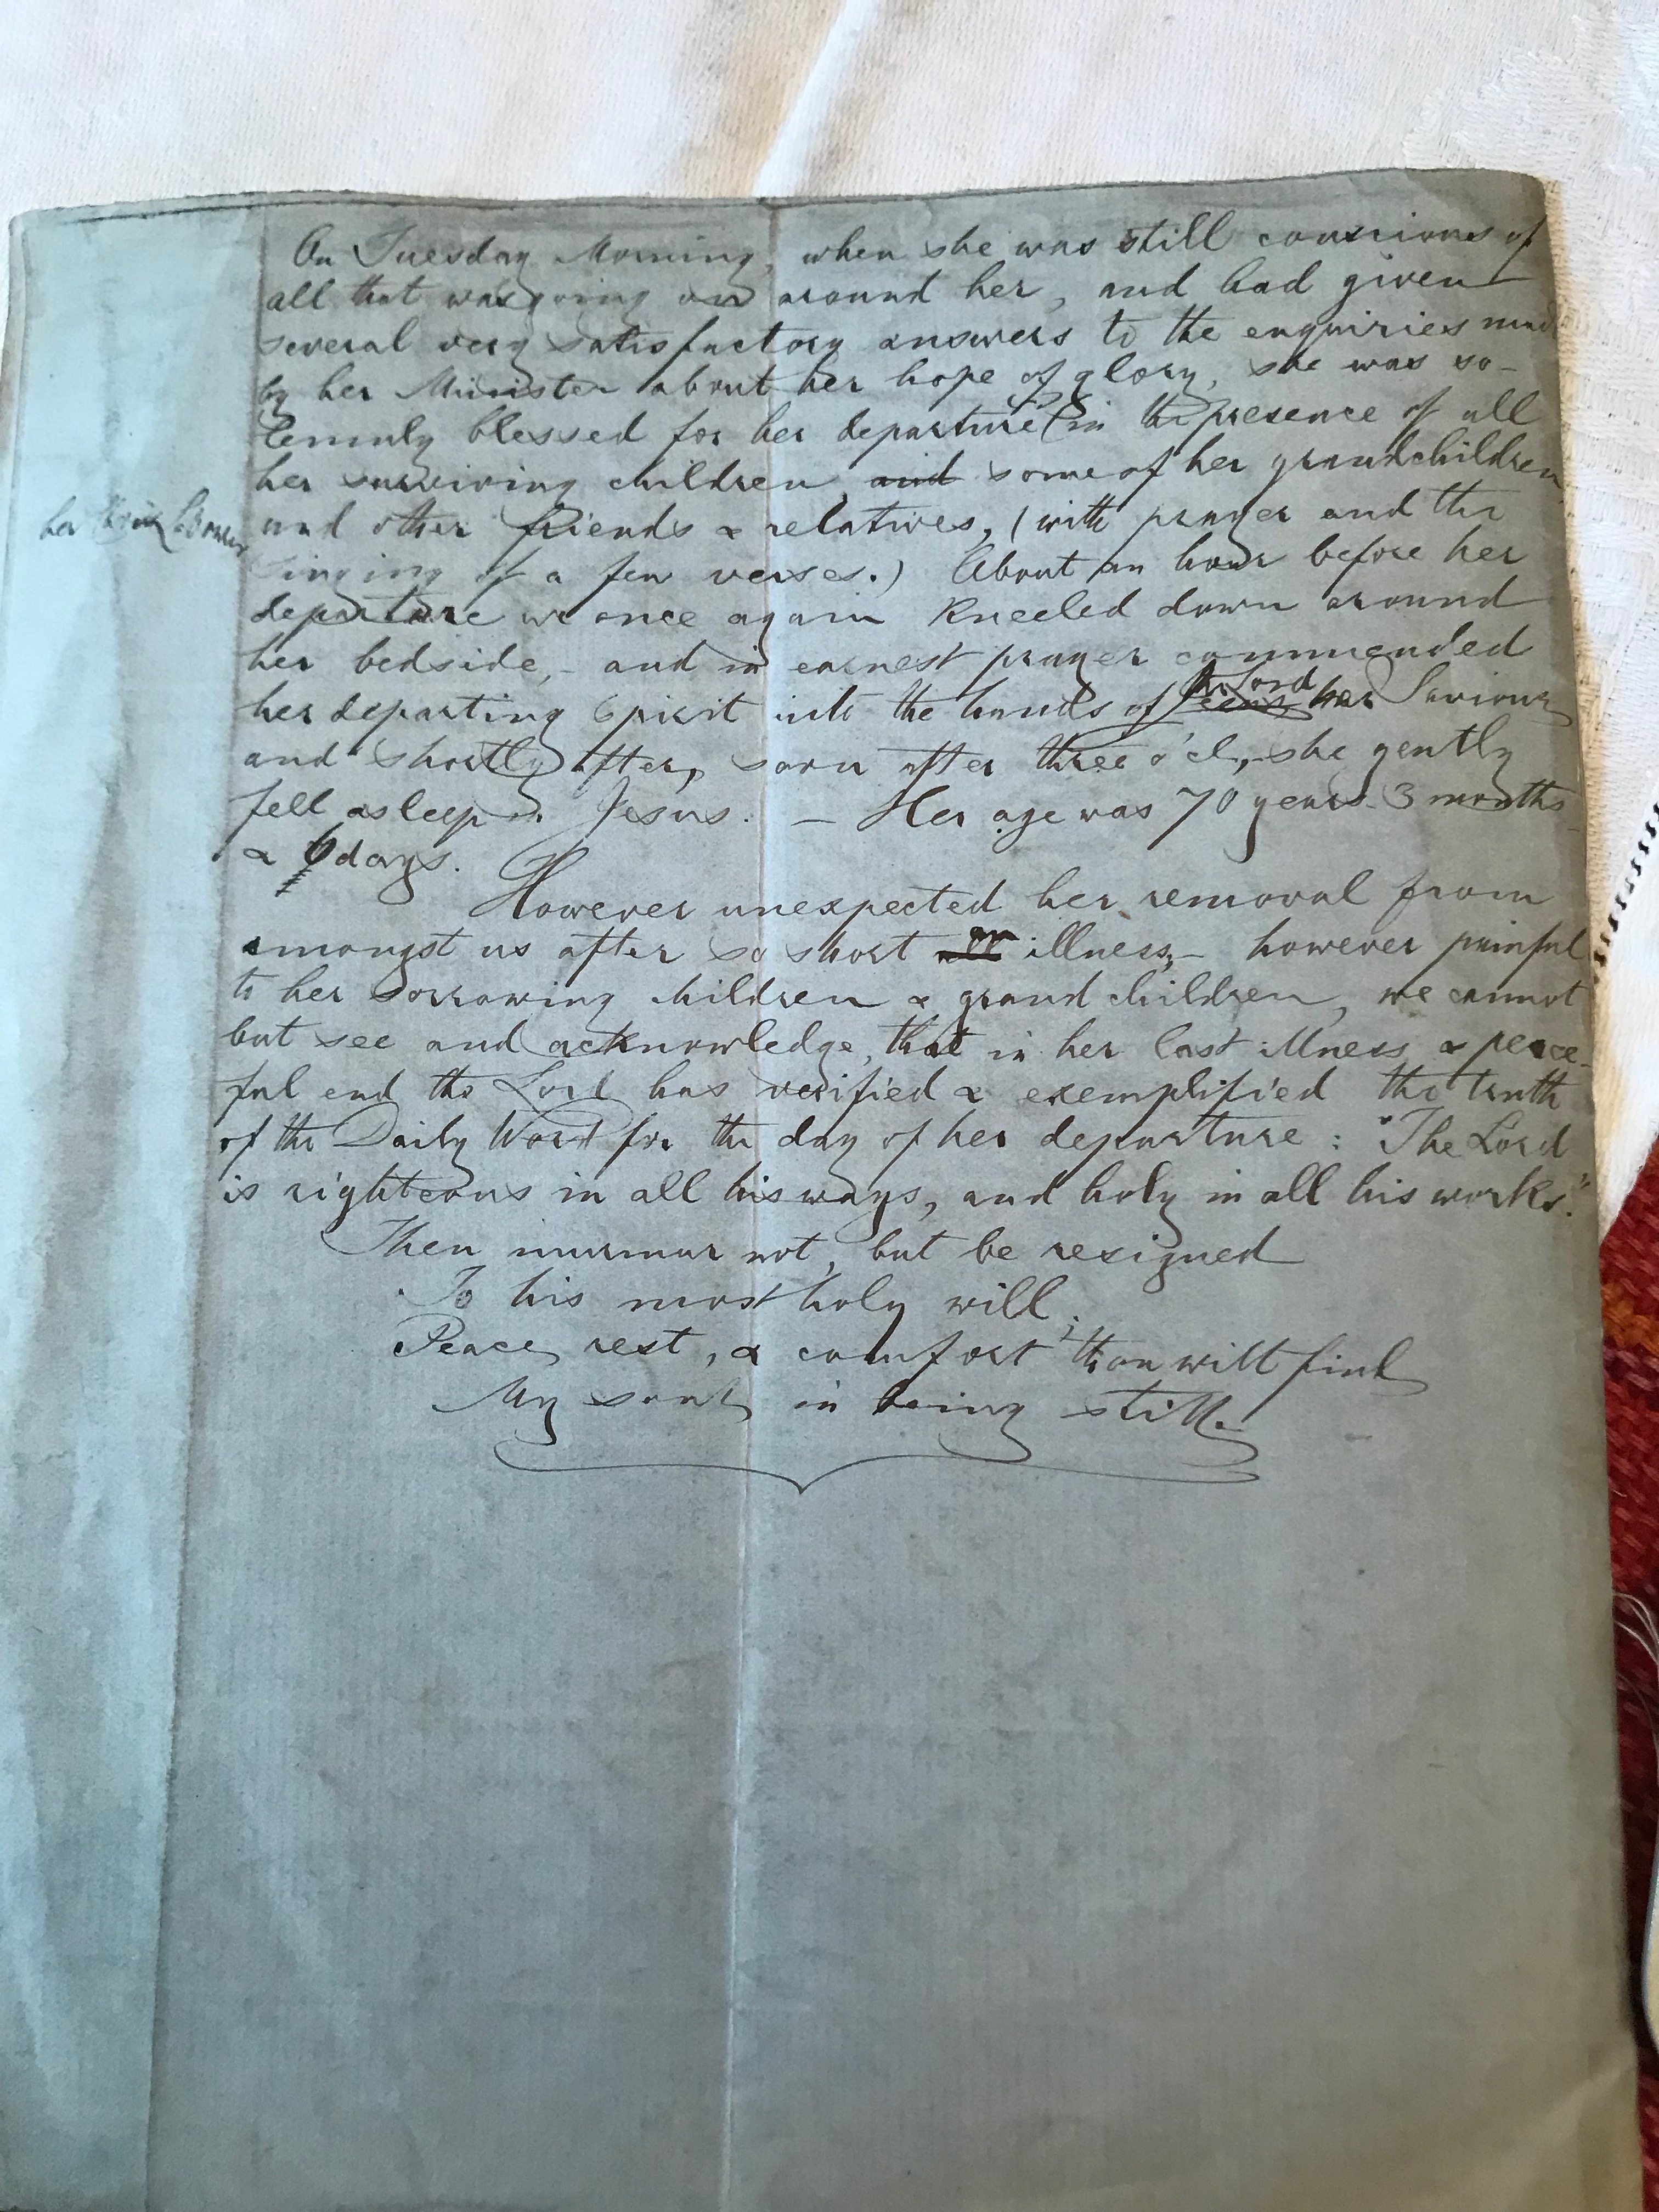 On Tuesday Morning, when she was still conscious of
all that was going on around her, and had given
several very satisfactory answers to the enquiries made
by her Minister about her hope of glory, she was so-
lemnly blessed for her departure (in the presence of all
her surviving children, and some of her grandchildren
her
and other friends & relatives, (with prayer and the
singing of a few verses.) About an hour before her
departure we once again kneeled down around
her bedside, - and in earnest prayer commended
the Lord
her departing spirit into the hands of Jesus her Saviour
and shortly after, soon after three o'cl, - she gently
fell asleep in Jesus. — Her age was 70 years 3 months
& 6 days.
However unexpected her removal from
an
amongst us after so short illness, - however painful
to her sorrowing children & grand children, we cannot
but see and acknowledge, that in her last illness & peace-
ful end the Lord has verified & exemplified the truth
of the Daily Word for the day of her departure : "The Lord
is righteous in all his ways, and holy in all his works."
Then murmur not, but be resigned
To his most holy will;
Peace, rest, & comfort thou wilt find
My soul, in being still.